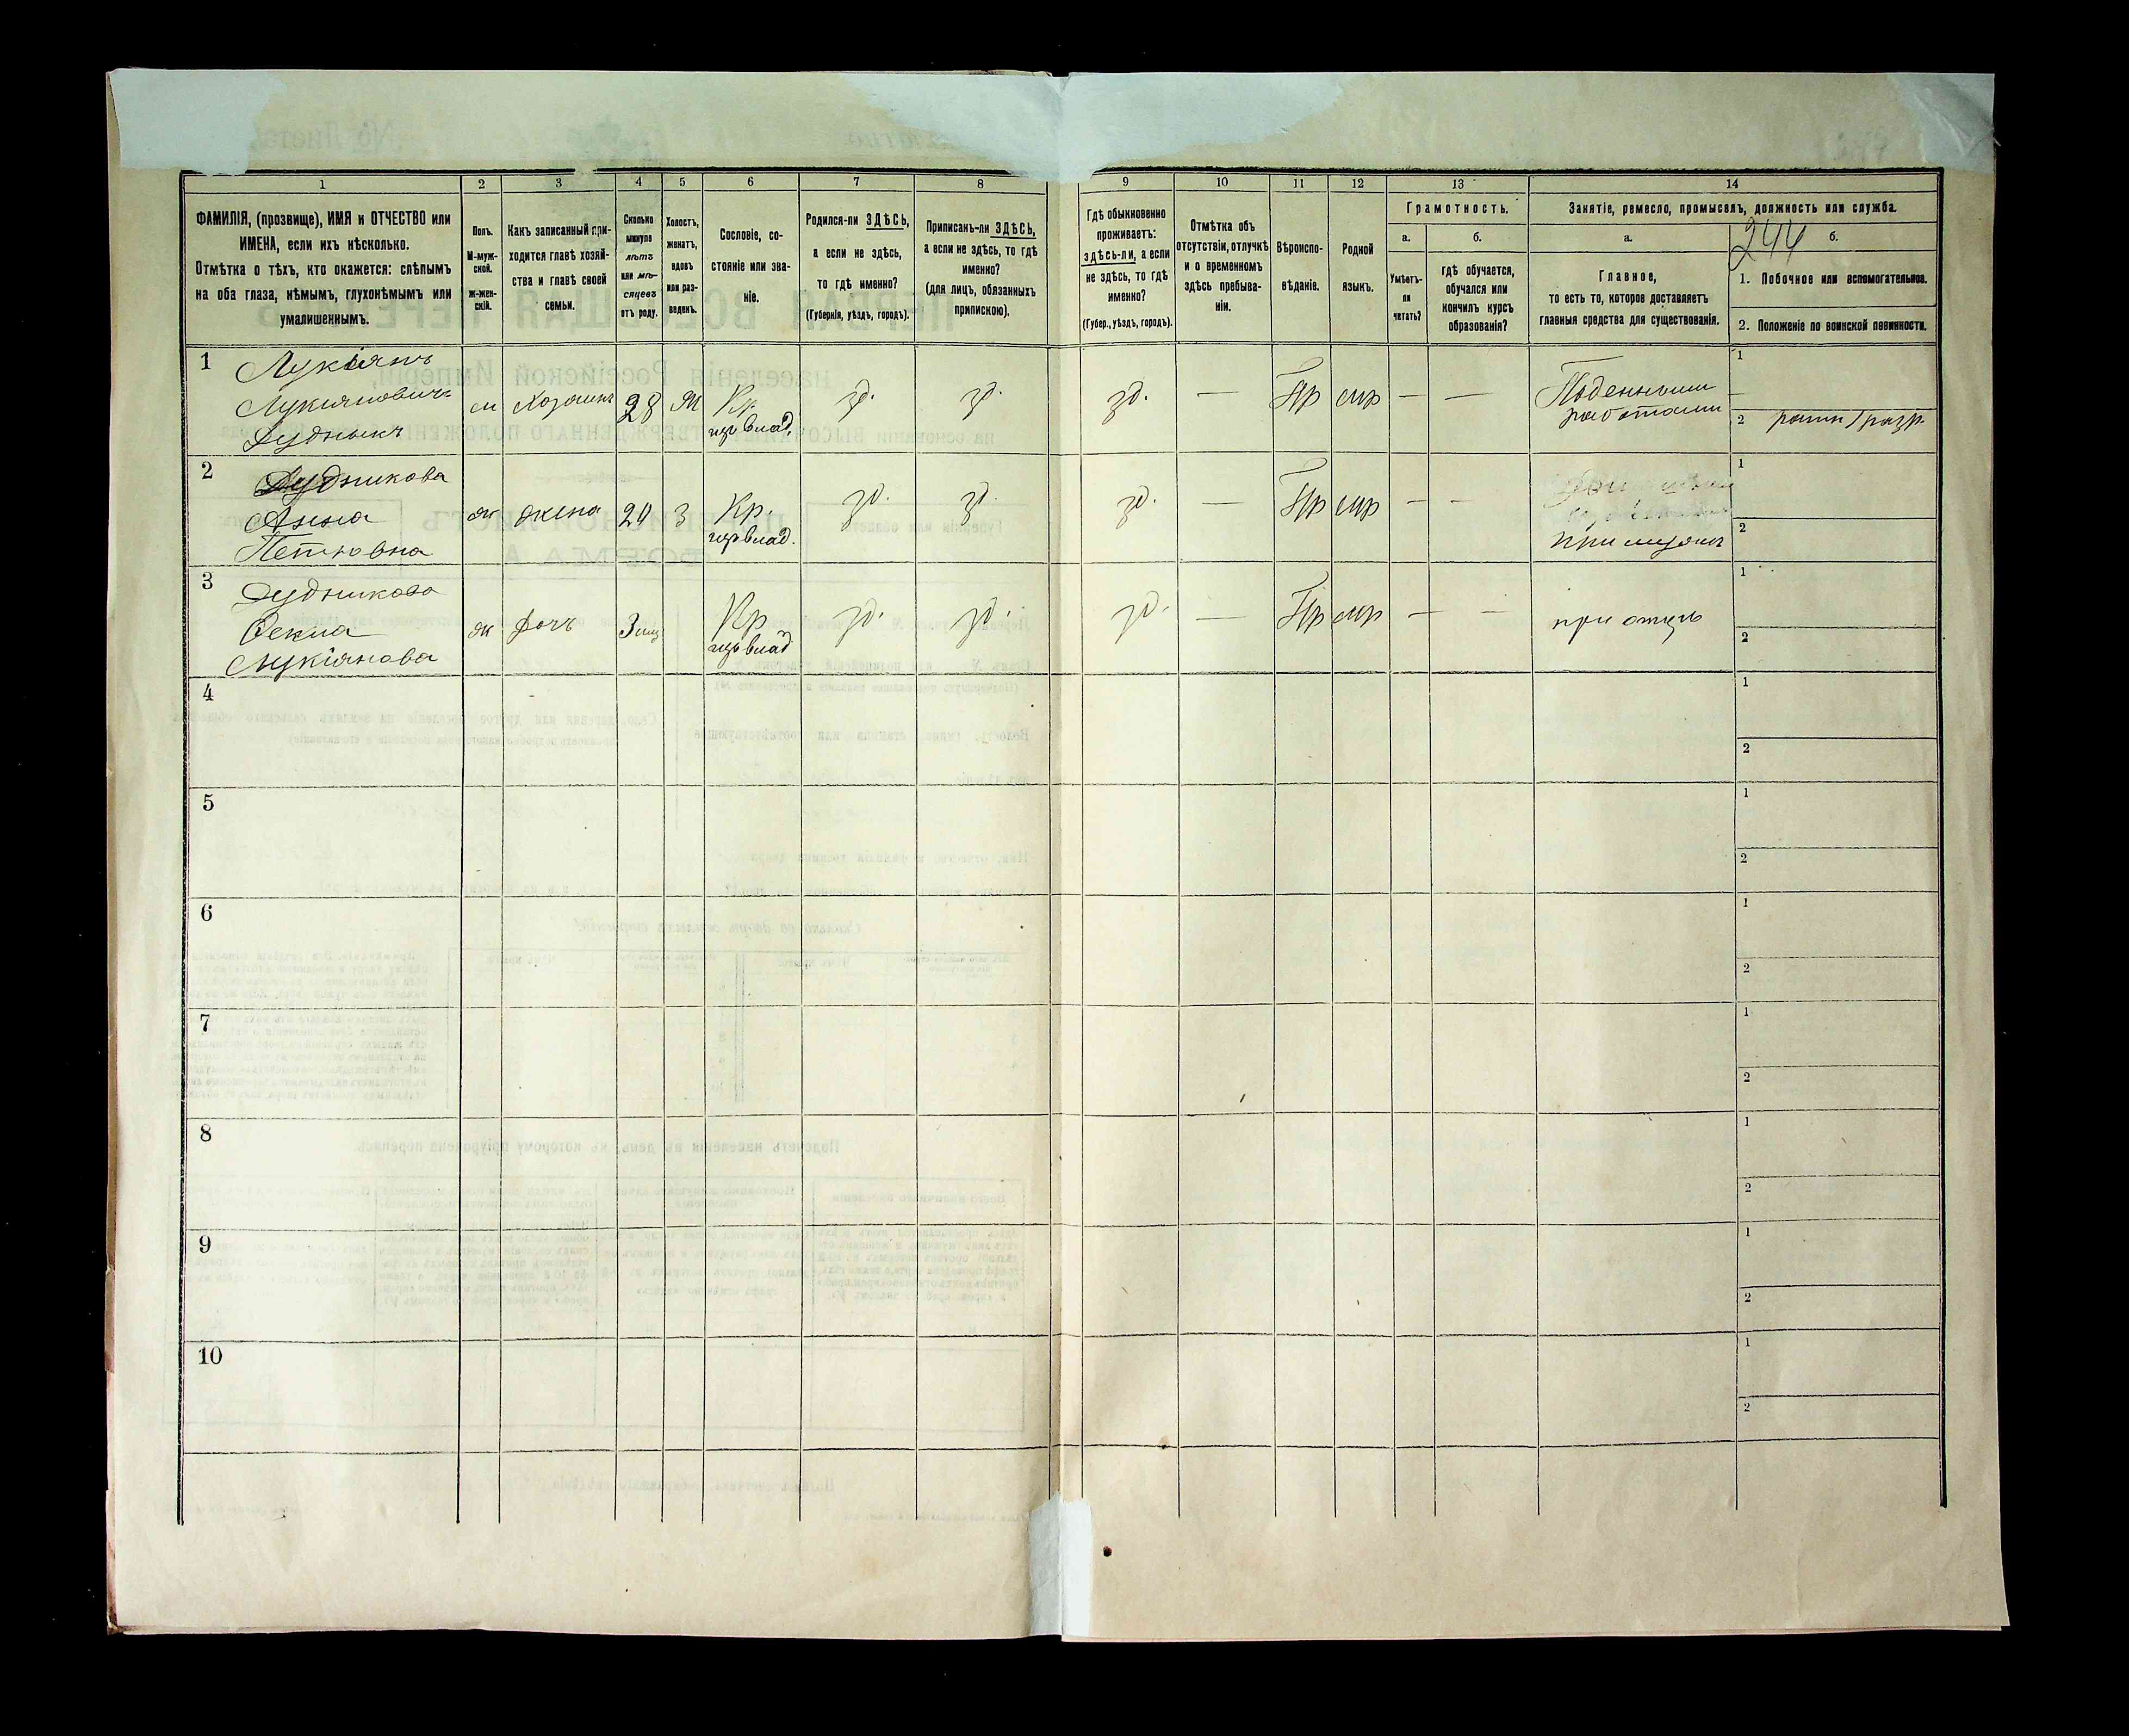 244
1 2 3 4 5 6 7 8 9 10 11 12 13 14
ФАМИЛІЯ, (прозвище), ИМЯ и ОТЧЕСТВО или
ИМЕНА, если ихъ нѣсколько.
Отмѣтка о тѣхъ, кто окажется: слѣпымъ
на оба глаза, нѣмымъ, глухонѣмымъ или
умалишеннымъ.
Полъ.
М-муж-
ской.
Ж-жен-
скій.
Какъ записанный при-
ходится главѣ хозяй-
ства и главѣ своей
семьи.
Сколько
минуло
лѣтъ
или мѣ-
сяцевъ
отъ роду.
Холостъ,
женатъ,
вдовъ
или раз-
веденъ.
Сословіе, со-
стояніе или зва-
ніе.
Родился-ли ЗДѢСЬ,
а если не здѣсь,
то гдѣ именно?
(Губернія, уѣздъ, городъ).
Приписанъ-ли ЗДѢСЬ,
а если не здѣсь, то гдѣ
именно?
(для лицъ, обязанныхъ
припискою).
Гдѣ обыкновенно
проживаетъ:
здѣсь-ли, а если
не здѣсь, то гдѣ
именно?
(Губер., уѣздъ, городъ).
Отмѣтка объ
отсутствіи, отлучкѣ
и о временномъ
здѣсь пребыва-
ніи.
Вѣроиспо-
вѣданіе.
Родной
языкъ.
Грамотность.
а.
Умѣетъ-
ли
читать?
б.
гдѣ обучается,
обучался или
кончилъ курсъ
образованія?
Занятіе, ремесло, промыселъ, должность или служба.
а.
Главное,
то есть то, которое доставляетъ
главныя средства для существованія.
б.
1. Побочное или вспомогательное.
2. Положеніе по воинской повинности.
1 Лукіянъ
Лукіяновичъ
Дудныкъ
м Хозяинъ 28 Ж Кр.
изъ влад.
зд. зд. зд. — Пр мр — —
Поденными
работами
1 —
2 ратн 1 разр.
2 Дудникова
Анна
Петровна
ж жена 20 З Кр.
изъ влад.
зд. зд. зд. — Пр мр — —
при мужѣ
1
2
3 Дудникова
Фекла
Лукіянова
ж дочь 3 мц Кр
изъ влад
зд. зд. зд. — Пр мр — —
при отцѣ
1
2
4
1
2
5
1
2
6
1
2
7
1
2
8
1
2
9
1
2
10
1
2